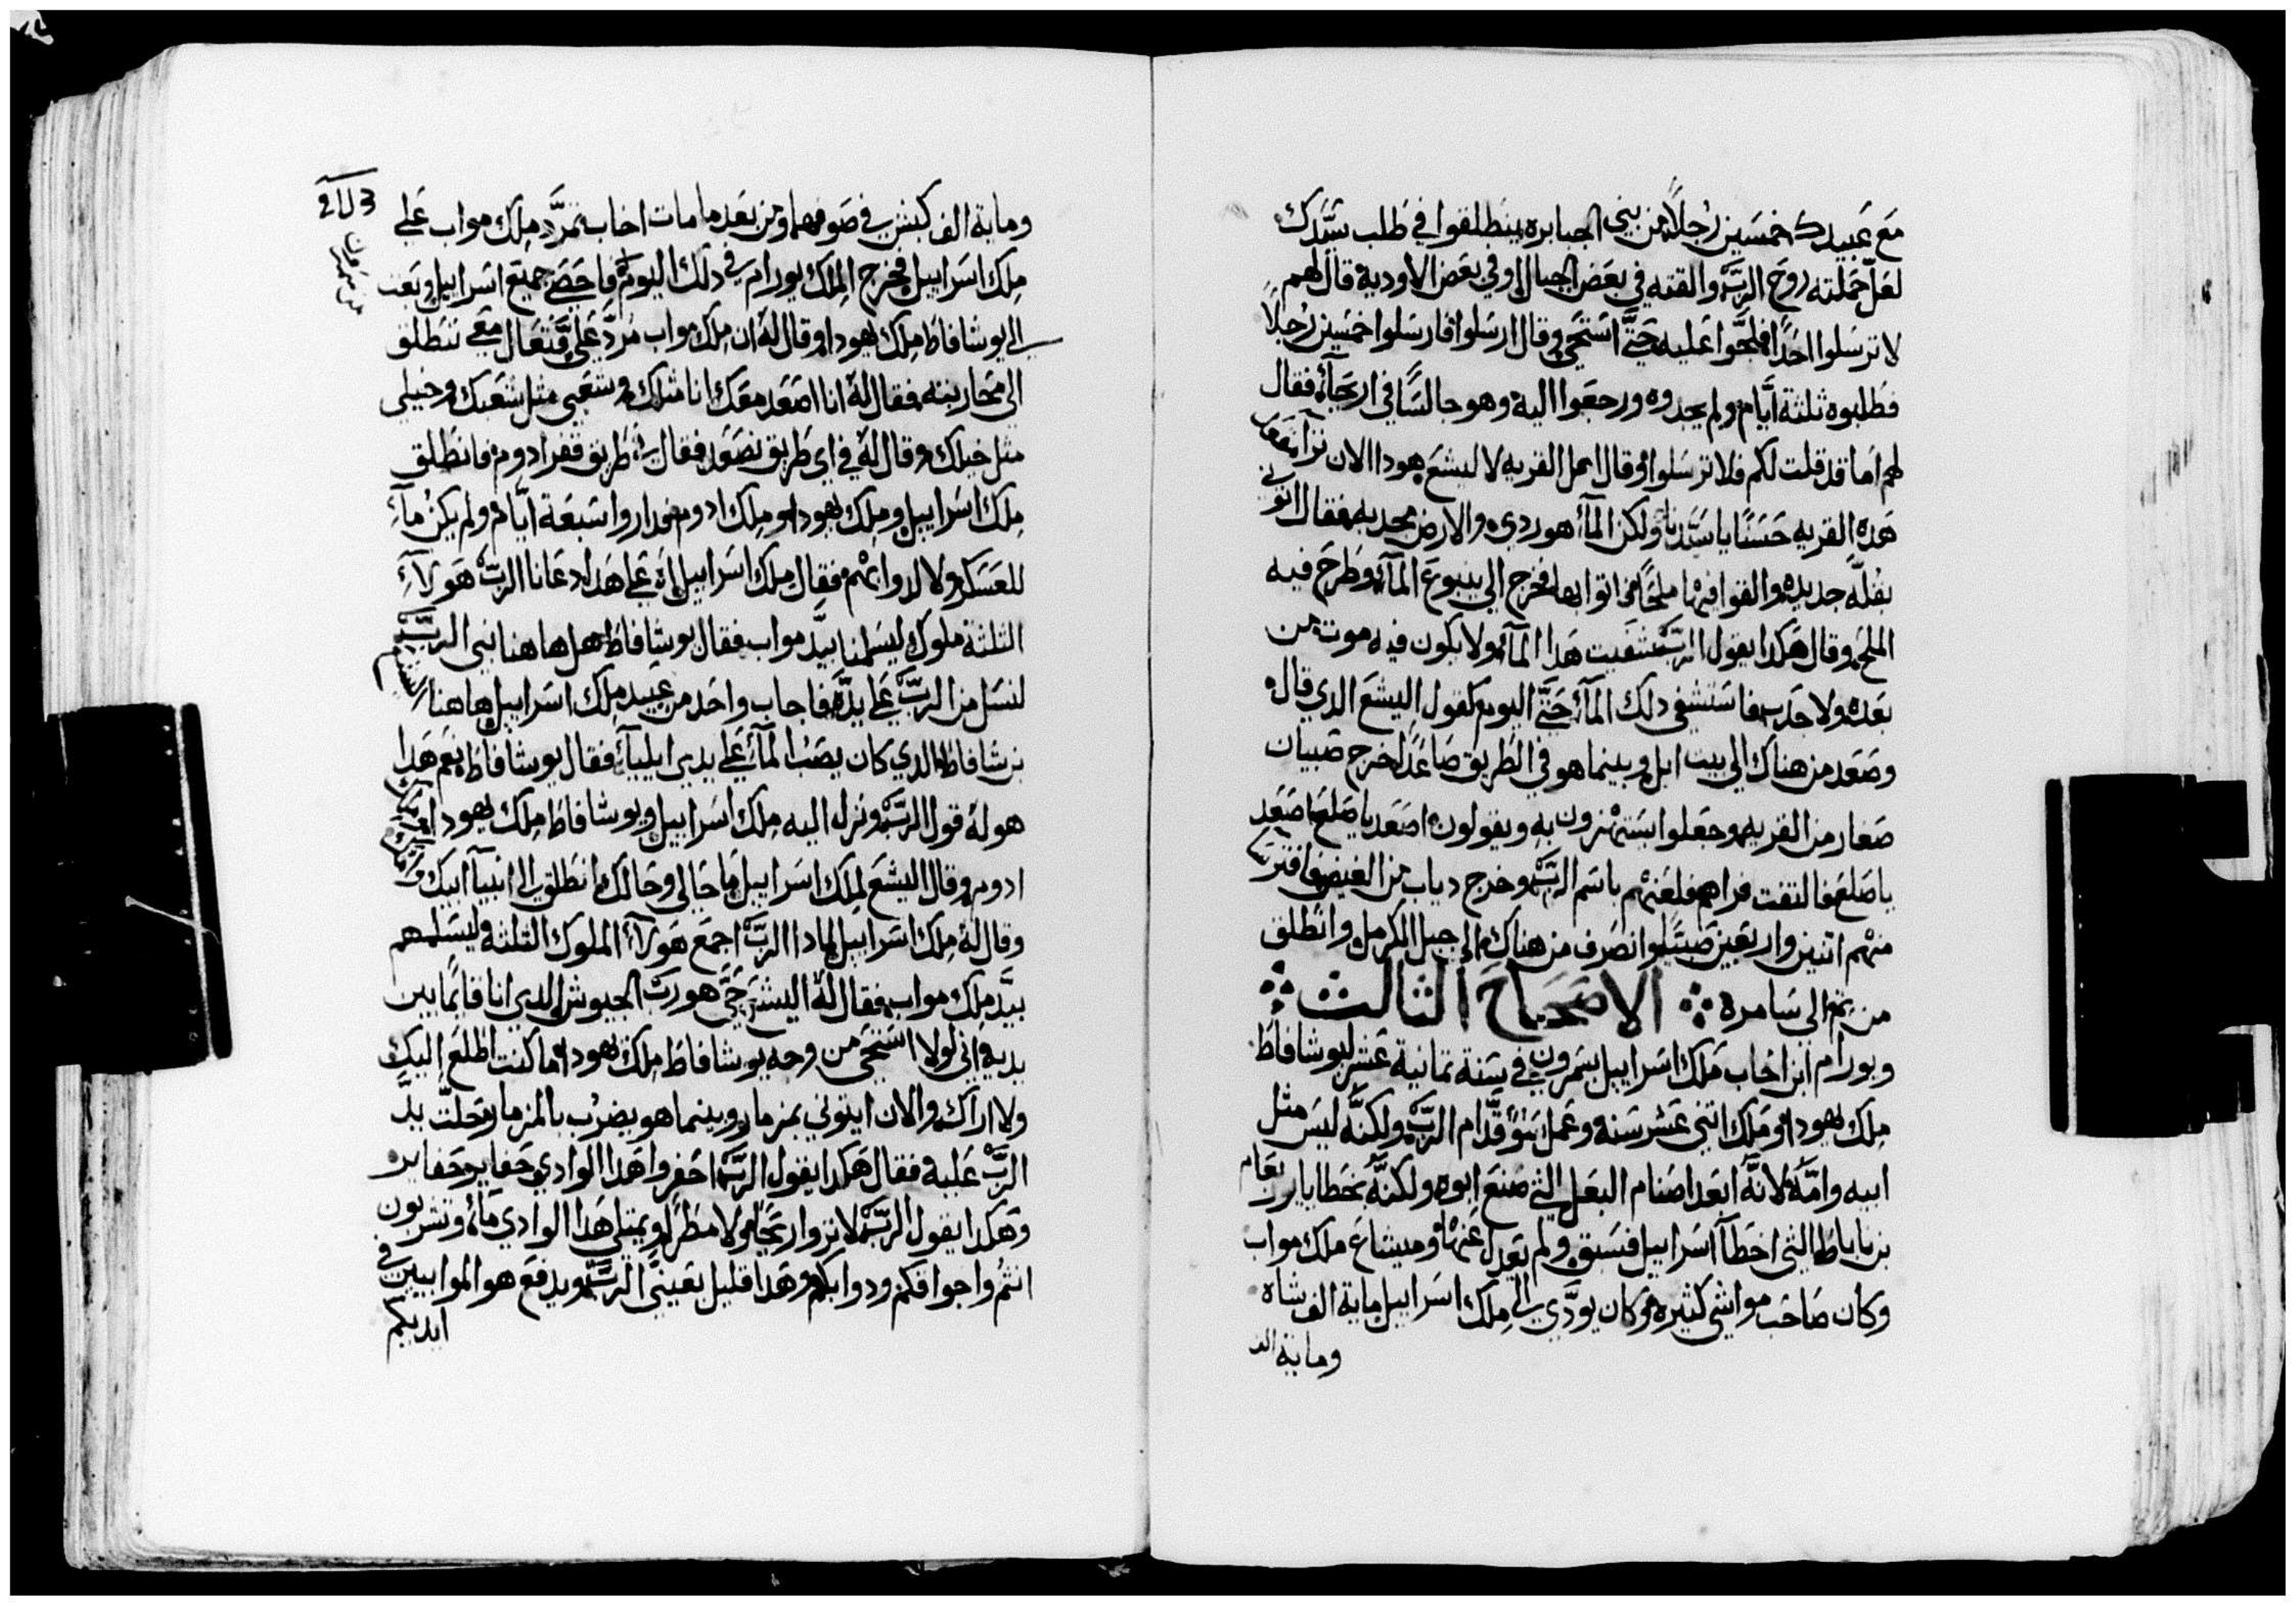 مع عبيدك خمسين رجلاً من بني الجبابره ينطلقوا في طلب سيّدك
لعلّ حملته روح الربّ والقته في بعض الجبال او في بعض الاودية قال لهم
لا ترسلوا احداً فلحّوا عليه حتّي استحي وقال ارسلوا فارسلوا خمسين رجلاً
فطلبوه ثلثة ايّام ولم يجدوه ورجعوا اليه وهو جالسًا في اريحآء فقال
لهم اما قد قلت لكم فلا ترسلوا وقال اهل القريه لاليشع هودا الان نرآ موضع
هده القريه حسنًا يا سيّدنا ولكن المآء هو ردي والارض مجدبه فقال اتوني
بقلّه جديده والقوا فيها ملحًا فاتوا بها فخرج الي ينبوع المآء وطرح فيه
الملح وقال هكدا يقول الربّ شفيت هدا المآء ولا يكون فيه موت من
بعده ولا جدب فاستشفي دلك المآء حتّي اليوم كقول اليشع الدي قال
وصعد من هناك الي بيت ابل وبينما هو في الطريق صاعداً خرج صبيان
صغار من القريه وجعلوا يستهزون به ويقولون اصعد يا صلع اصعد
يا صلع فالتفت فراهم فلعنهم باسم الربّ وخرج دياب من الغيض فافترسا
منهم اتنين واربعين صبيّاً وانصرف من هناك الي جبل الكرمل وانطلق
من تم الي سامرة ❖ الاصحاح الثالث ❖
ويورام ابن اخاب ملك اسراييل بشمرون في سنة تمانية عشر ليوشافاط
ملك يهودا وملك اتني عشر سنة وعمل سؤ قدّام الربّ ولكنّه ليس مثل
ابيه وامّه لانّه ابعد اصنام البعل التي صنع ابوه ولكنّه بخطايا يربعام
بن ناباط التي اخطآ اسراييل فسبق ولم يعدل عنها وميشاع ملك مواب
وكان صاحب مواشي كثيره وكان يودّي الي ملك اسراييل ماية الف شاه
وماية الف
وماية الف كبش في صوفهما ومن بعد ما مات اخاب تمرّد ملك مواب علي
ملك اسراييل فخرج الملك يورام في دلك اليوم فاحصي جميع اسراييل وبعت
الي يوشافاط ملك يهودا وقال له ان ملك مواب مردّ عليّ فتعال معي ننطلق
الي محاربته فقال له انا اصعد معك انا مثلك وشعبي مثل شعبك وخيلي
مثل خيلك وقال له في اي طريق نصعد فقال في طريق قفر ادوم فانطلق
ملك اسراييل وملك يهودا وملك ادوم فداروا سبعة ايّام ولم يكن مآء
للعسكر ولا لدوابهم فقال ملك اسراييل اه علي هدا دعانا الربّ هولآء
التلتة ملوك ليسلمنا بيدّ مواب فقال يوشافاط هل هاهنا نبي الربّ
لنسل من الربّ علي يدّه فاجاب واحد من عبيد ملك اسراييل هاهنا اليشع
بن شافاط الدي كان يصبّ المآء علي يدي ايلياء فقال يوشافاط نعم هدا
هو له قول الربّ ونزل اليه ملك اسراييل ويوشافاط ملك يهودا وملك
ادوم وقال اليشع لملك اسراييل ما حالي وحالك انطلق الي انبيآ ابيك وامّك
وقال له ملك اسراييل لمادا الربّ اجمع هولآء الملوك التلتة وليسلمهم
بيدّ ملك مواب فقال له اليشع حيّ هو ربّ الجيوش الدي انا قائمًا بين
يديه اني لولا استحي من وجه يوشافاط ملك يهودا ما كنت اطلع اليك
ولا اراك والان ايتوني بمزمار وبينما هو يضرب بالمزمار وحلّت يدّ
الربّ عليه فقال هكدا يقول الربّ احفروا هدا الوادي حفاير حفاير
وهكدا يقول الربّ لا تروا ريحًا ولا مطراً ويمتلي هدا الوادي مآء وتشربون
انتم واجواقكم ودوابكم وهدا قليل بعينيّ الربّ ويدفع هو الموابيين في
ايديكم